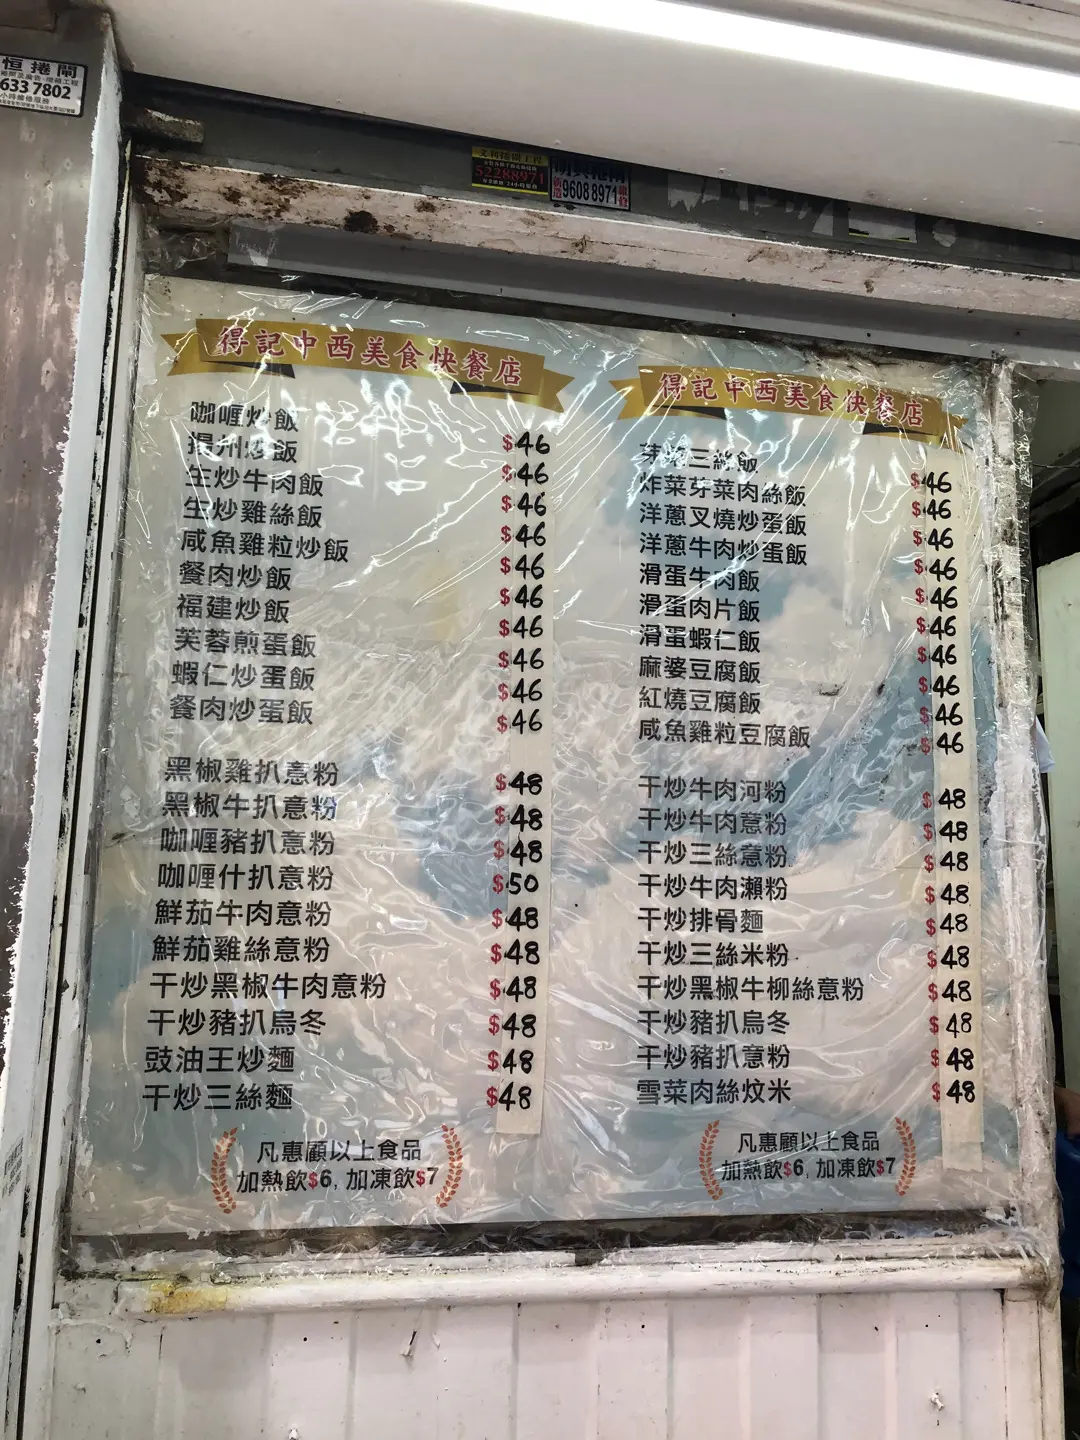 恒捲閘
633 7802
52288971
9608 8971
得記中西美食快餐店
咖喱炒飯 $46
揚州炒飯 $46
生炒牛肉飯 $46
生炒雞絲飯 $46
咸魚雞粒炒飯 $46
餐肉炒飯 $46
福建炒飯 $46
芙蓉煎蛋飯 $46
蝦仁炒蛋飯 $46
餐肉炒蛋飯 $46
黑椒雞扒意粉 $48
黑椒牛扒意粉 $48
咖喱豬扒意粉 $48
咖喱什扒意粉 $50
鮮茄牛肉意粉 $48
鮮茄雞絲意粉 $48
干炒黑椒牛肉意粉 $48
干炒豬扒烏冬 $48
豉油王炒麵 $48
干炒三絲麵 $48
凡惠顧以上食品
加熱飲$6, 加凍飲$7
得記中西美食快餐店
芽菜三絲飯 $46
炸菜芽菜肉絲飯 $46
洋蔥叉燒炒蛋飯 $46
洋蔥牛肉炒蛋飯 $46
滑蛋牛肉飯 $46
滑蛋肉片飯 $46
滑蛋蝦仁飯 $46
麻婆豆腐飯 $46
紅燒豆腐飯 $46
咸魚雞粒豆腐飯 $46
干炒牛肉河粉 $48
干炒牛肉意粉 $48
干炒三絲意粉 $48
干炒牛肉瀨粉 $48
干炒排骨麵 $48
干炒三絲米粉 $48
干炒黑椒牛柳絲意粉 $48
干炒豬扒烏冬 $48
干炒豬扒意粉 $48
雪菜肉絲炆米 $48
凡惠顧以上食品
加熱飲$6, 加凍飲$7